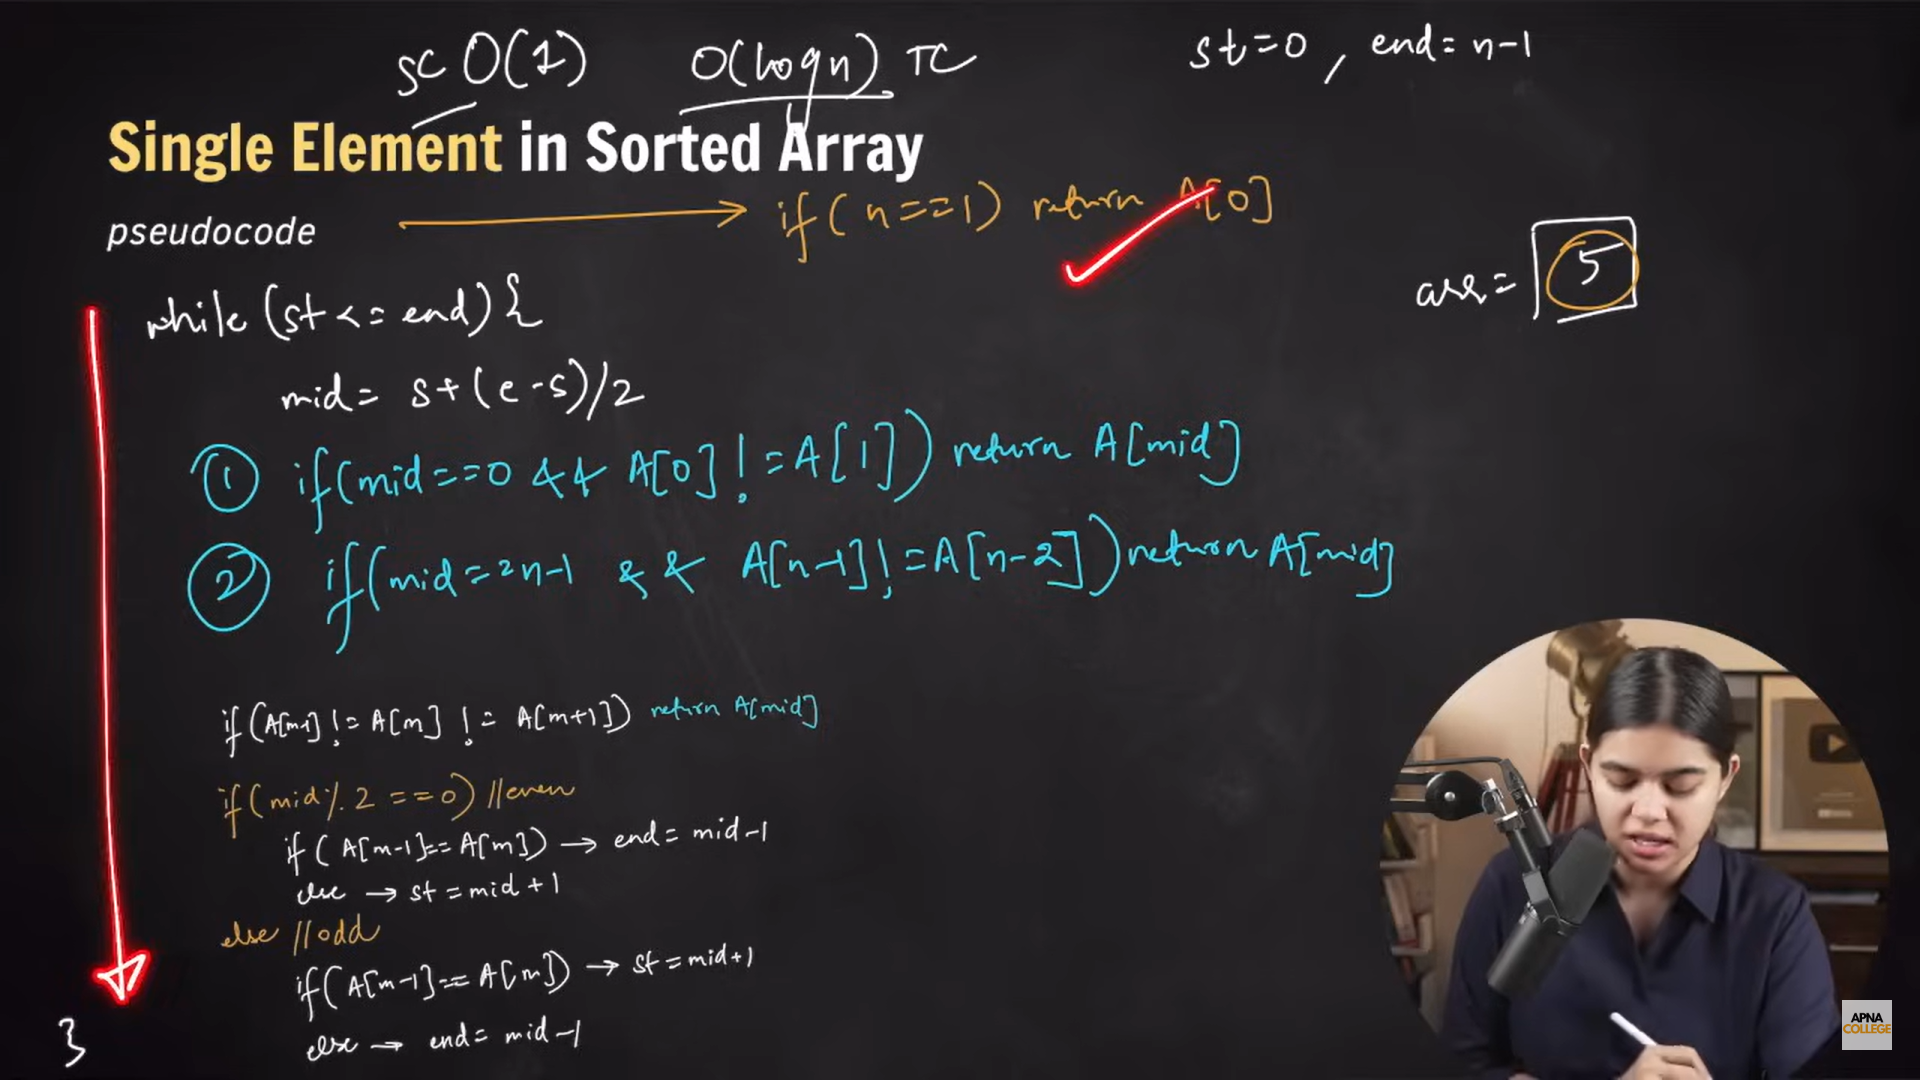 SC O(1) O(logn) TC st=0 , end= n-1
Single Element in Sorted Array
pseudocode → if(n==1) return A[0]
arr= 5
while (st <= end) {
mid= s+(e-s)/2
① if(mid==0 && A[0]!=A[1]) return A[mid]
② if(mid==n-1 && A[n-1]!=A[n-2]) return A[mid]
if(A[m-1] != A[m] != A[m+1]) return A[mid]
if(mid%2==0) //even
if(A[m-1]==A[m]) → end= mid-1
else → st=mid+1
else //odd
if(A[m-1]==A[m]) → st=mid+1
else → end= mid-1
}
APNA
COLLEGE